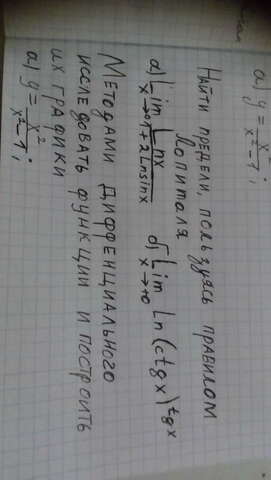 а) y = x/(x²-1);
Найти предели, пользуясь правилом
Лопиталя
а) Lim x→0 Lnx/(1+2Lnsinx) б) Lim x→+0 Ln(ctgx)^tgx
Методами дифференциального
исследовать функции и построить
их графики
а) y = x²/(x²-1);